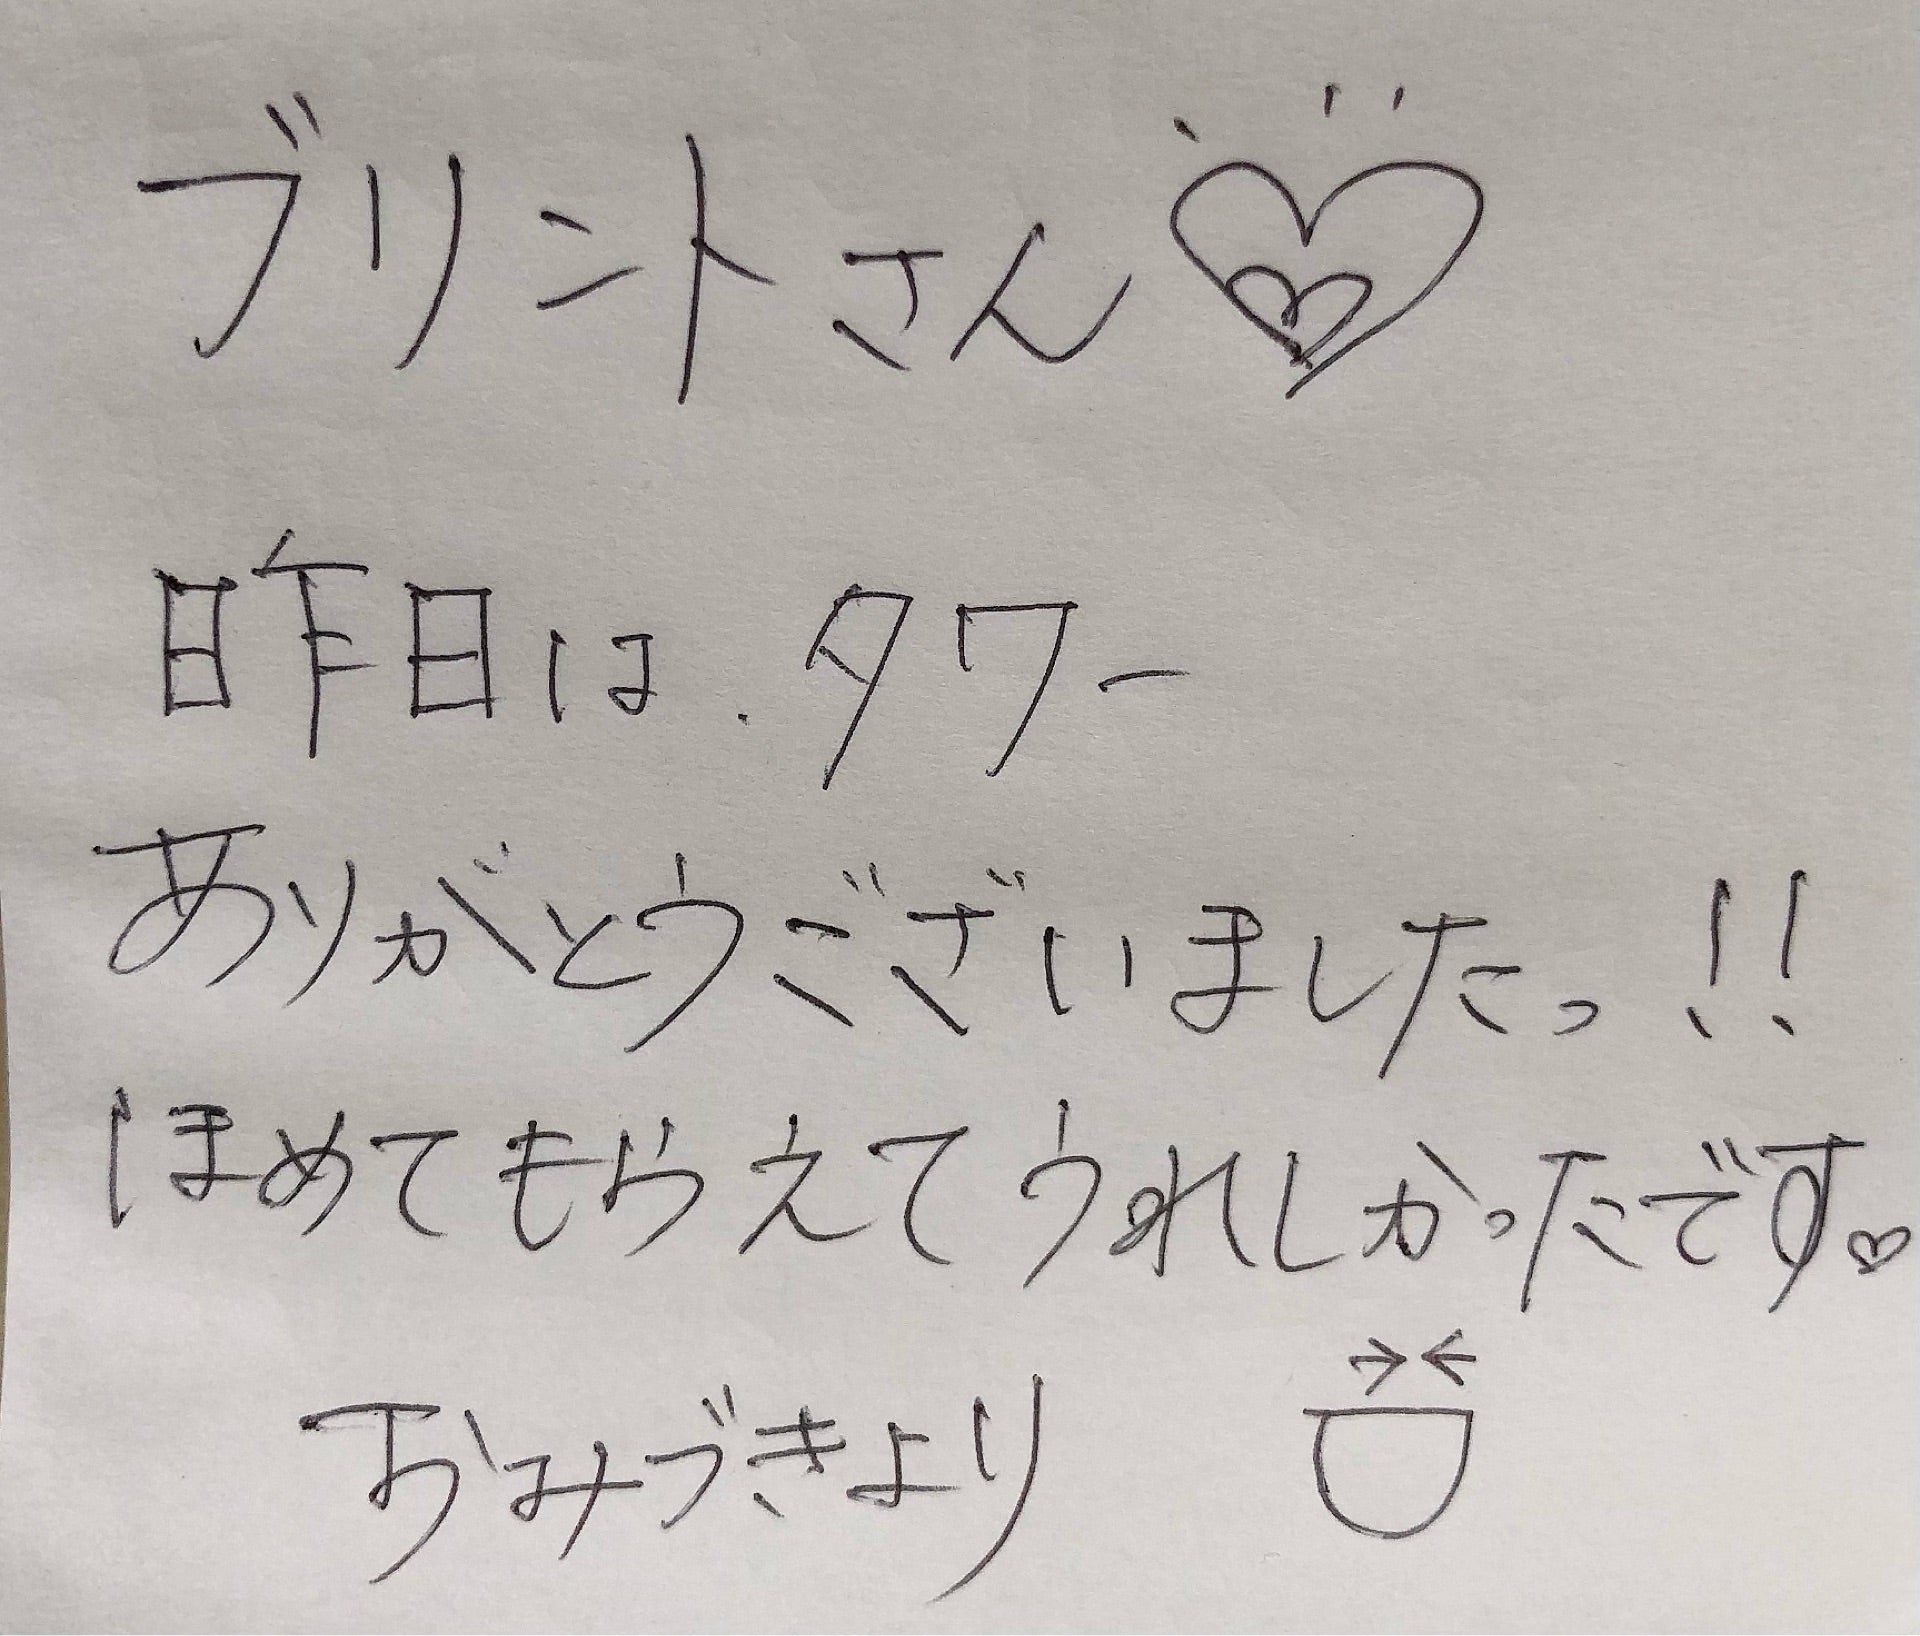 ブリントさん♡
昨日は、タワー
ありがとうございましたっ!!
ほめてもらえてうれしかったです。♡
おみづきより